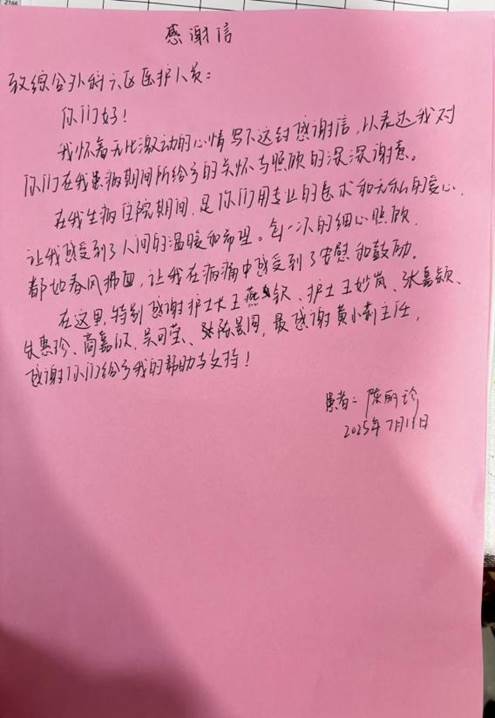 感谢信
致综合外科六区医护人员：
你们好！
我怀着无比激动的心情写下这封感谢信，以表达我对
你们在我患病期间所给予的关怀与照顾的深深谢意。
在我生病住院期间，是你们用专业的医术和无私的爱心，
让我感受到了人间的温暖和希望。每一次的细心照顾，
都如春风拂面，让我在病痛中感受到了安慰和鼓励。
在这里，特别感谢护士长王燕、护士王妙岚、张嘉颖、
朱惠珍、高嘉欣、吴可莹、陈昙周，最感谢黄小莉主任，
感谢你们给予我的帮助与支持！
患者：陈丽珍
2025年7月11日